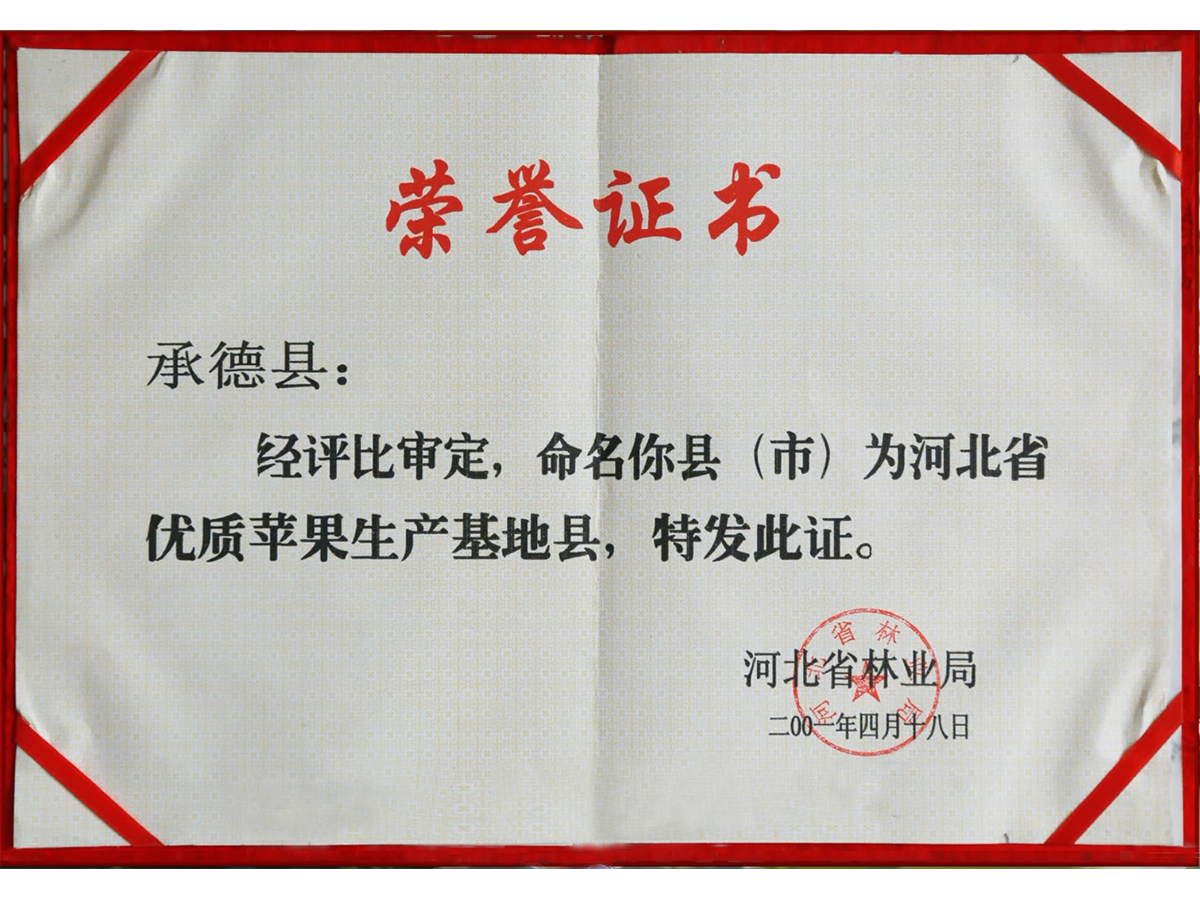 荣誉证书
承德县：
经评比审定，命名你县（市）为河北省
优质苹果生产基地县，特发此证。
河北省林业局
二00一年四月十八日
河北省林业局